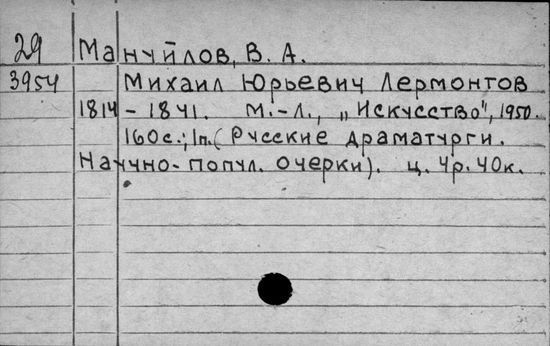 29 Мануйлов, В. А.
3954 Михаил Юрьевич Лермонтов
1814 - 1841. М.-Л., „Искусство", 1950.
160с.; 1п. (Русские драматурги.
Научно-попул. очерки). ц. 4р. 40к.